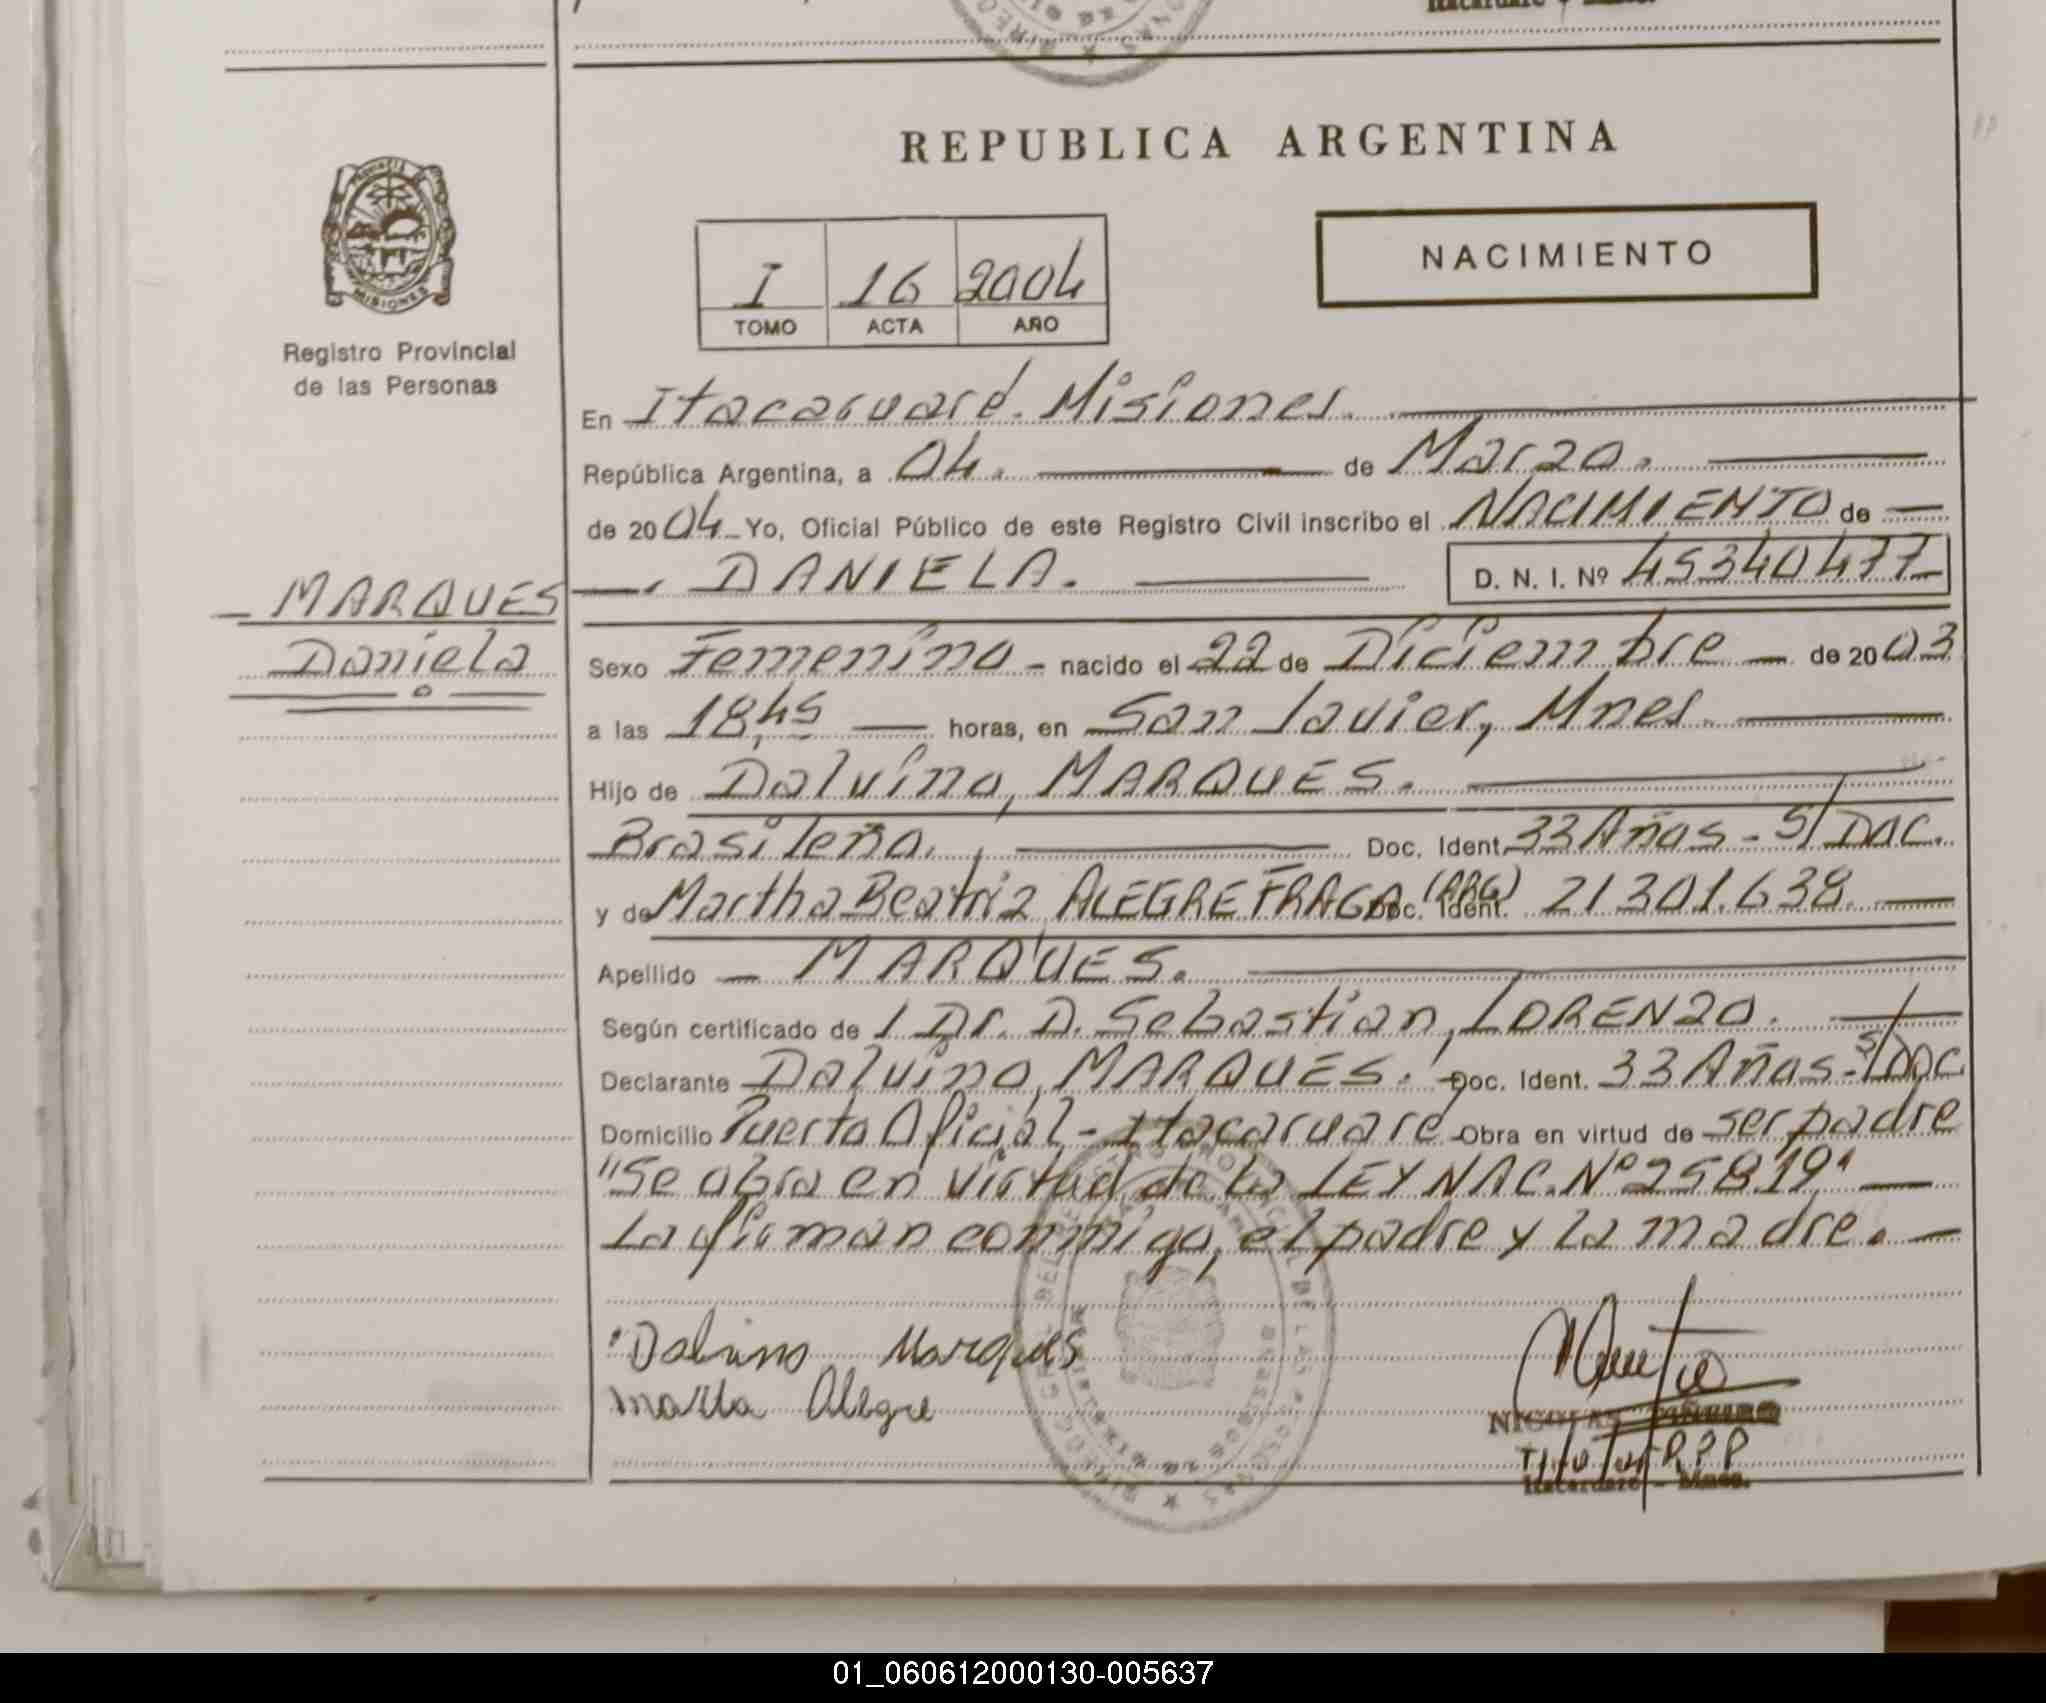 REPUBLICA ARGENTINA
PROVINCIA DE
MISIONES
Registro Provincial
de las Personas
I 16 2004
TOMO ACTA AÑO
NACIMIENTO
En Itacaruaré. Misiones.
República Argentina, a 04. de Marzo.
de 2004 Yo, Oficial Público de este Registro Civil inscribo el NACIMIENTO de
DANIELA. D. N. I. Nº 45340477
MARQUES
Daniela
Sexo Femenino - nacido el 22 de Diciembre de 2003
a las 18,45 horas, en San Javier, Mnes.
Hijo de Dalvino, MARQUES.
Brasileño. Doc. Ident. 33 Años - S/Doc.
y de Martha Beatriz ALEGRE FRAGA (ARG) Doc. Ident. 21301.638
Apellido MARQUES.
Según certificado de 1 Dr. D. Sebastian, LORENZO.
Declarante Dalvino, MARQUES. Doc. Ident. 33 Años - S/Doc
Domicilio Puerto Oficial - Itacaruare Obra en virtud de ser padre
"Se obra en virtud de la LEY NAC. Nº 25819"
La firman conmigo, el padre y la madre.
Dalvino Marques
Marta Alegre
NICOLAS PIÑEIRO
R P P
Itacaruaré - Mnes.
01_060612000130-005637